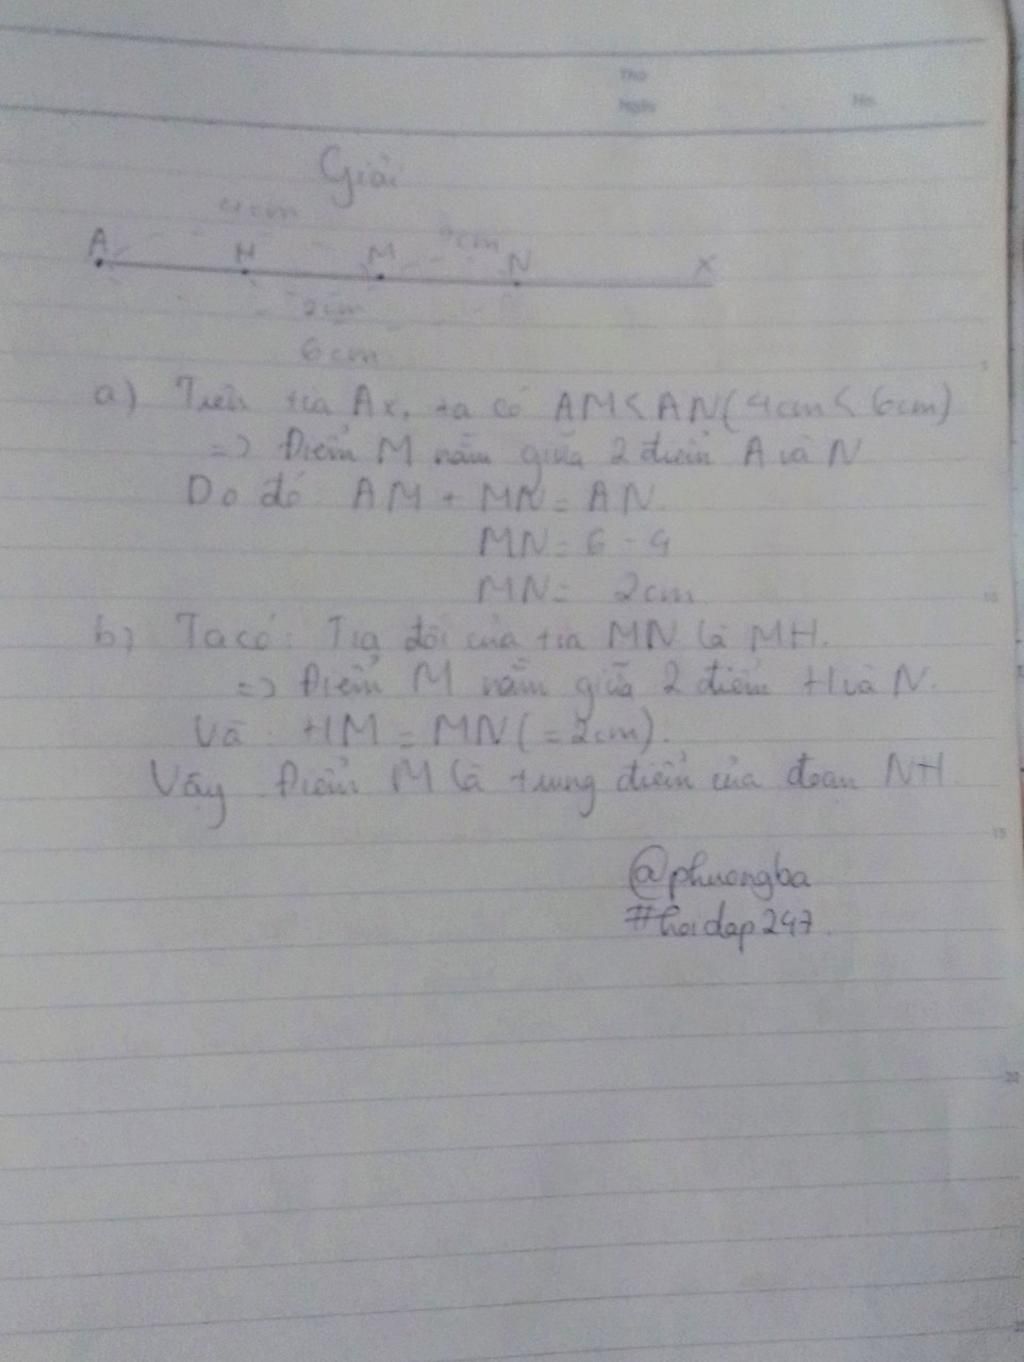 Thứ
Ngày No.
Giải
4cm
A H M 2cm N x
2cm
6cm
a) Trên tia Ax, ta có AM < AN (4cm < 6cm)
=> Điểm M nằm giữa 2 điểm A và N
Do đó: AM + MN = AN.
MN = 6 - 4
MN = 2cm
b) Ta có: Tia đối của tia MN là MH.
=> Điểm M nằm giữa 2 điểm H và N.
Và: HM = MN (= 2cm).
Vậy điểm M là trung điểm của đoạn NH
@phuongba
#hoidap247